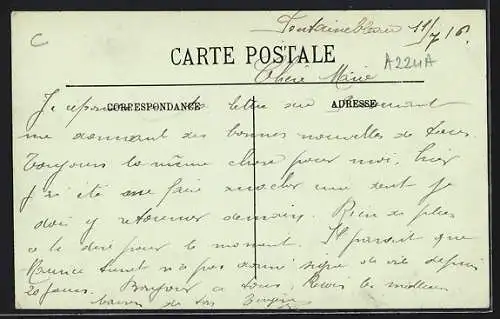 C
Fontainebleau 11/7/16.
CARTE POSTALE
A224A
Chère Marie
CORRESPONDANCE
ADRESSE
Je réponds lettre me
me donnant des bonnes nouvelles de tous.
Toujours la même chose pour moi, hier
j'ai été me faire arracher une dent je
dois y retourner demain. Rien de plus
a te dire pour le moment. Il parait que
Maurice n'a pas donné signe de vie depuis
20 jours. Bonjour a tous. Reçois les meilleurs
baisers de ton